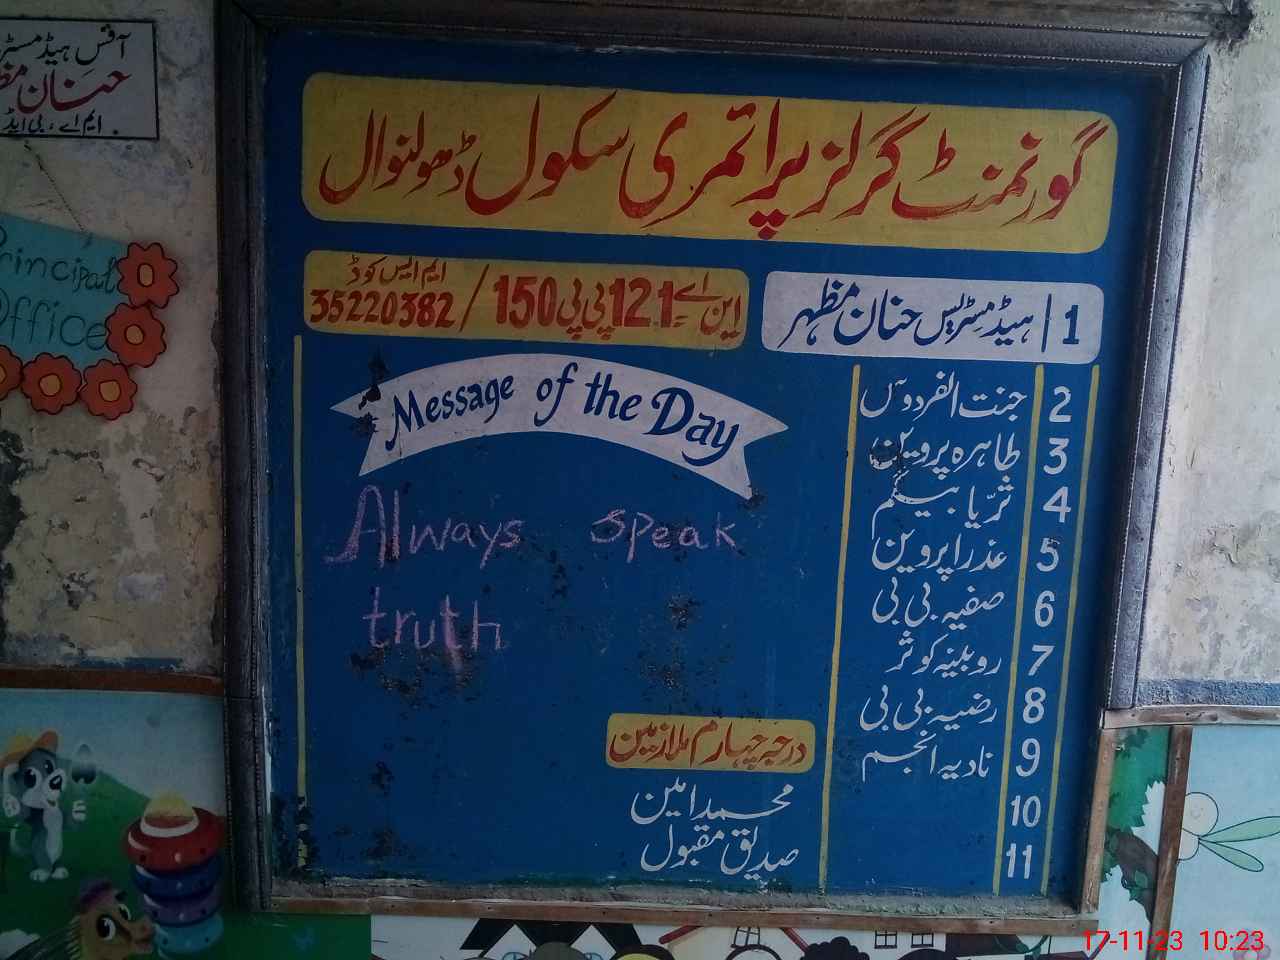 آفس ہیڈ مسٹر
حنان مظ
ایم اے، بی ایڈ
Principal
Office
گورنمنٹ گرلز پرائمری سکول ڈھولنوال
ایم ایس کوڈ
35220382 / این اے 121 پی پی 150
1 ہیڈ مسٹریس حنان مظہر
Message of the Day
Always speak
truth
2 جنت الفردوس
3 طاہرہ پروین
4 ثریّا بیگم
5 عذرا پروین
6 صفیہ بی بی
7 روبینہ کوثر
8 رضیہ بی بی
9 نادیہ انجم
10
11
درجہ چہارم ملازمین
محمد امین
صدیق مقبول
17-11-23 10:23